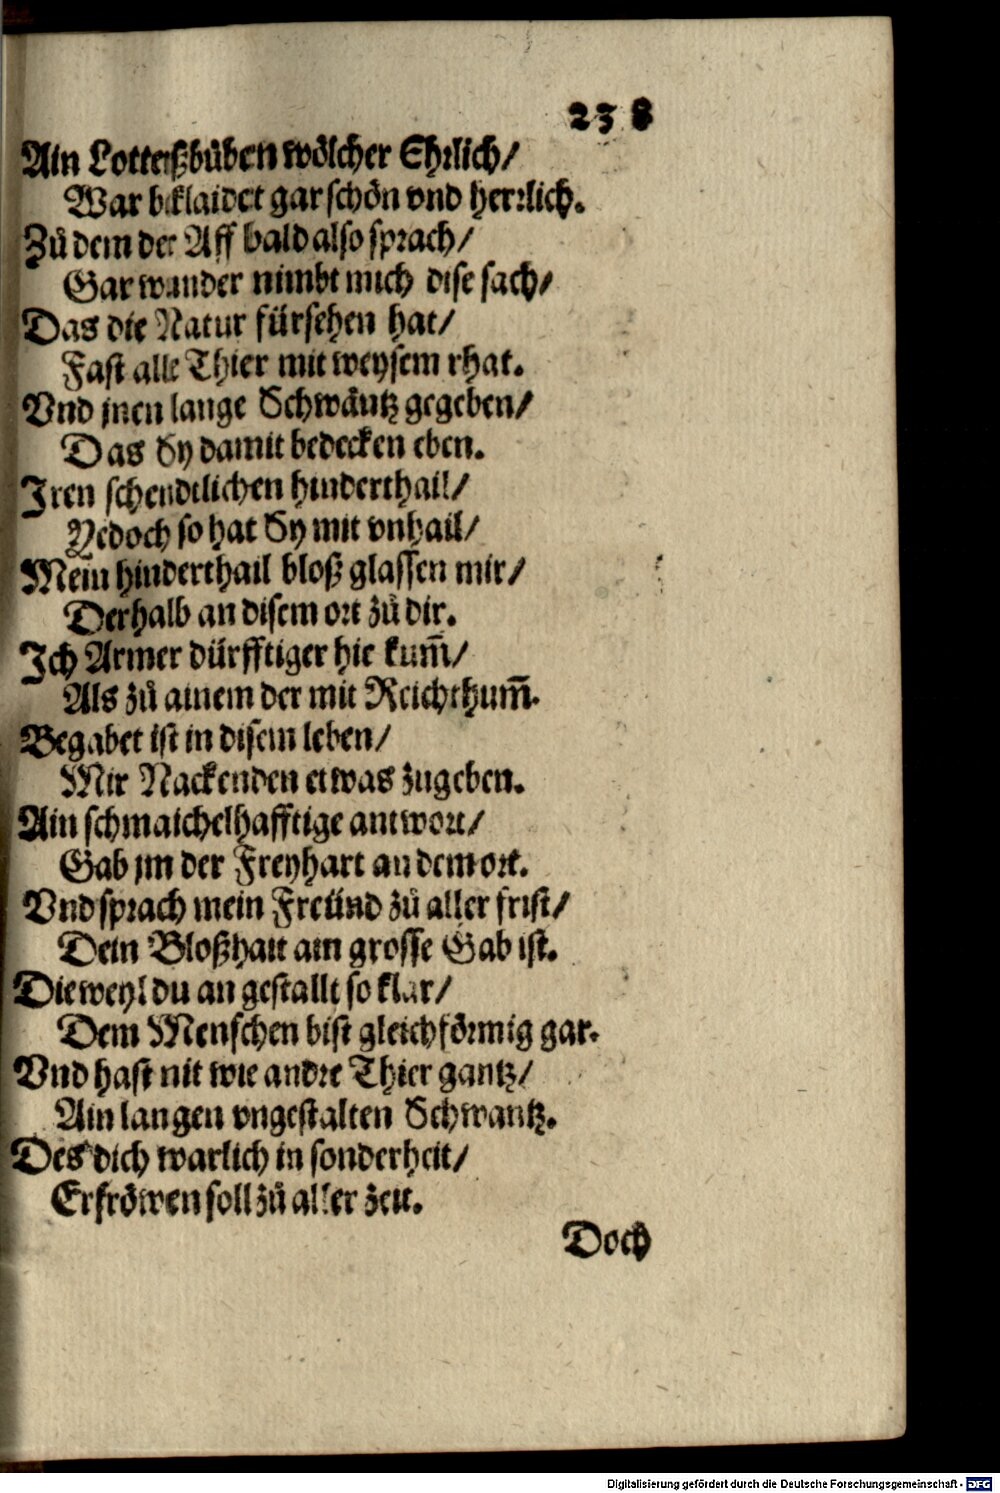 238
Ain Lotterßbůben wölcher Ehrlich/
War beklaidet gar schön vnd herrlich.
Zů dem der Aff bald also sprach/
Gar wunder nimbt mich dise sach/
Das die Natur fürsehen hat/
Fast alle Thier mit weysem rhat.
Vnd jnen lange Schwäntz gegeben/
Das Sy damit bedecken eben.
Iren schendtlichen hinderthail/
Yedoch so hat Sy mit vnhail/
Mein hinderthail bloß glassen mir/
Derhalb an disem ort zů dir.
Ich Armer dürfftiger hie kum̃/
Als zů ainem der mit Reichthum̃.
Begabet ist in disem leben/
Mir Nackenden etwas zugeben.
Ain schmaichelhafftige antwort/
Gab jm der Freyhart an dem ort.
Vnd sprach mein Freünd zů aller frist/
Dein Bloßhait ain grosse Gab ist.
Dieweyl du an gestallt so klar/
Dem Menschen bist gleichförmig gar.
Vnd hast nit wie andre Thier gantz/
Ain langen vngestalten Schwantz.
Des dich warlich in sonderheit/
Erfröwen soll zů aller zeit.
Doch
Digitalisierung gefördert durch die Deutsche Forschungsgemeinschaft - DFG